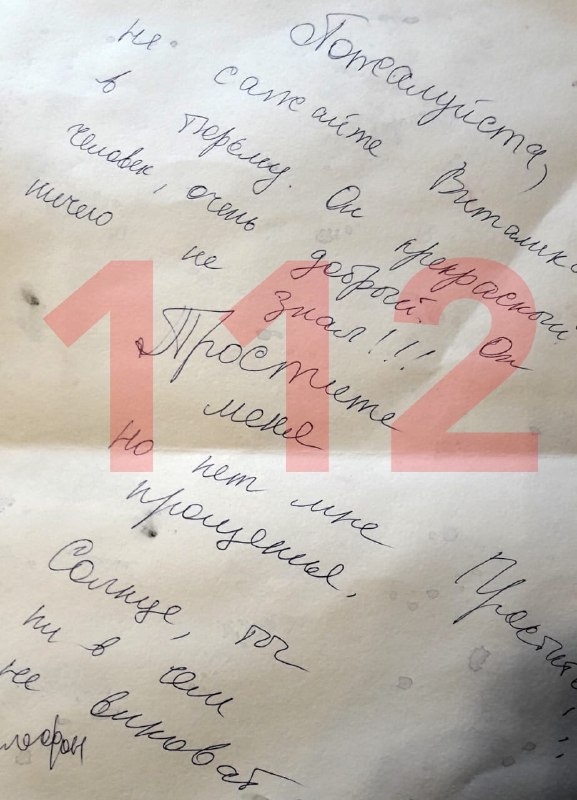 Пожалуйста,
не сажайте Виталика
в тюрьму. Он прекрасный
человек, очень добрый. Он
ничего не знал!!!
Простите
меня
но нет мне
прощенья.
Простите
!!
Солнце, ты
ни в чем
не виноват
112